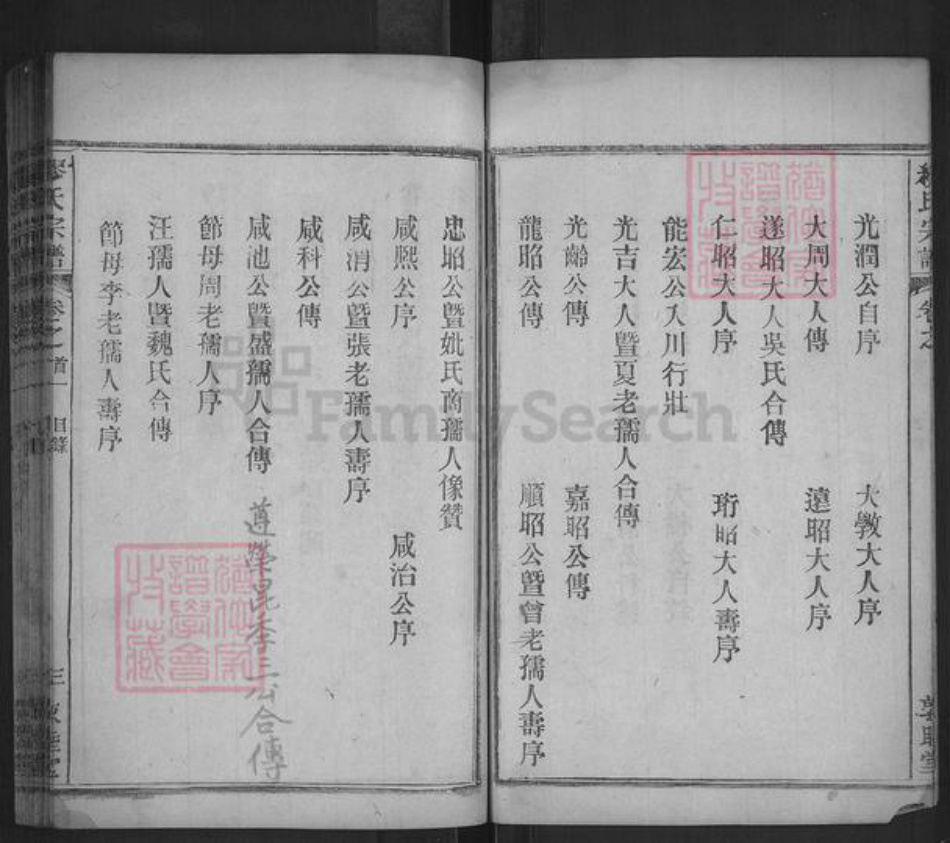 光潤公自序 大敎大人序
大周大人傳 遠昭大人序
遂昭大人吳氏合傳
仁昭大人序 珩昭大人壽序
能宏公入川行壯
光吉大人暨夏老孺人合傳
光齡公傳 嘉昭公傳
龍昭公傳 順昭公暨曾老孺人壽序
忠昭公暨妣氏商孺人像贊
咸熙公序 咸治公序
咸消公暨張老孺人壽序
咸科公傳
咸池公暨盛孺人合傳 道榮昆季三公合傳
節母周老孺人序
汪孺人暨魏氏合傳
節母李老孺人壽序
氏宗譜 卷之首 目錄 三 敦睦堂
FamilySearch